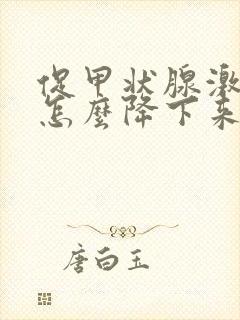 促甲状腺激
怎麼降下来
唐白玉